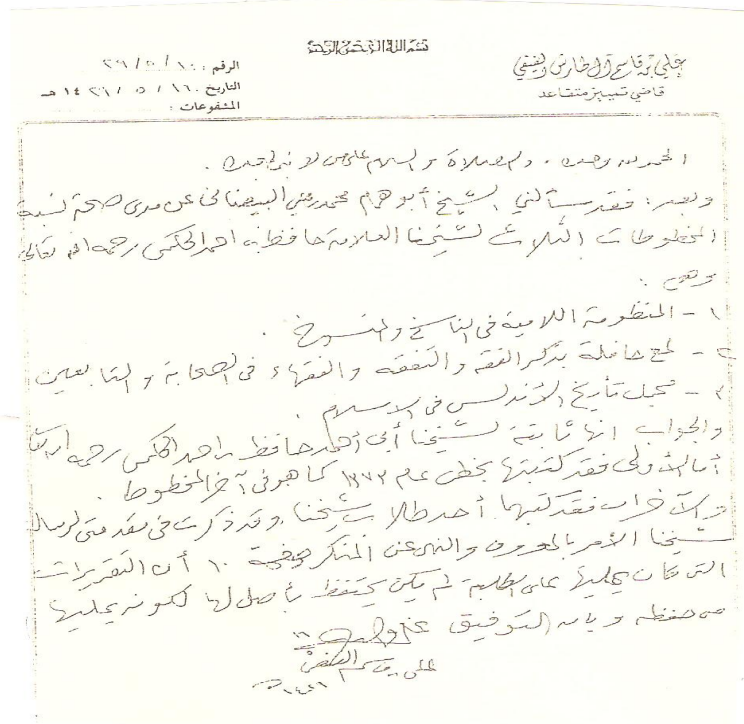 بسم الله الرحمن الرحيم
علي بن قاسم آل طارش الفيفي
قاضي تمييز متقاعد
الرقم : ١٠ / ٥ / ٢٦
التاريخ ١٦ / ٥ / ١٤٢٦ هـ
المشفوعات :
الحمد لله وحده . والصلاة والسلام على من لا نبي بعده .
وبعد : فقد سألني الشيخ أبو همام محمد بن علي البيضاني عن مدى صحة نسبة
المخطوطات الثلاث لشيخنا العلامة حافظ بن احمد الحكمي رحمه الله تعالى
وهي :
١ - المنظومة اللامية في الناسخ والمنسوخ .
٢ - لمح حافلة بذكر الفقه والتفقه والفقهاء في الصحابة والتابعين
٣ - مجمل تأريخ الأندلس في الاسلام .
والجواب انها ثابتة لشيخنا أبي أحمد حافظ بن احمد الحكمي رحمه الله
أما الأولى فقد كتبتها بخطي عام ١٣٧٣ كما هو في آخر المخطوط .
والأخريات فقد كتبهما أحد طلاب شيخنا وقد ذكرت في مقدمتي لرسالة
شيخنا الأمر بالمعروف والنهي عن المنكر صفحة ١٠ أن التقريرات
التي كان يمليها على الطلبة لم يكن يحتفظ بأصل لها لكونه يمليها
من حفظه وبالله التوفيق
علي بن قاسم الفيفي
١٤٢٦ هـ